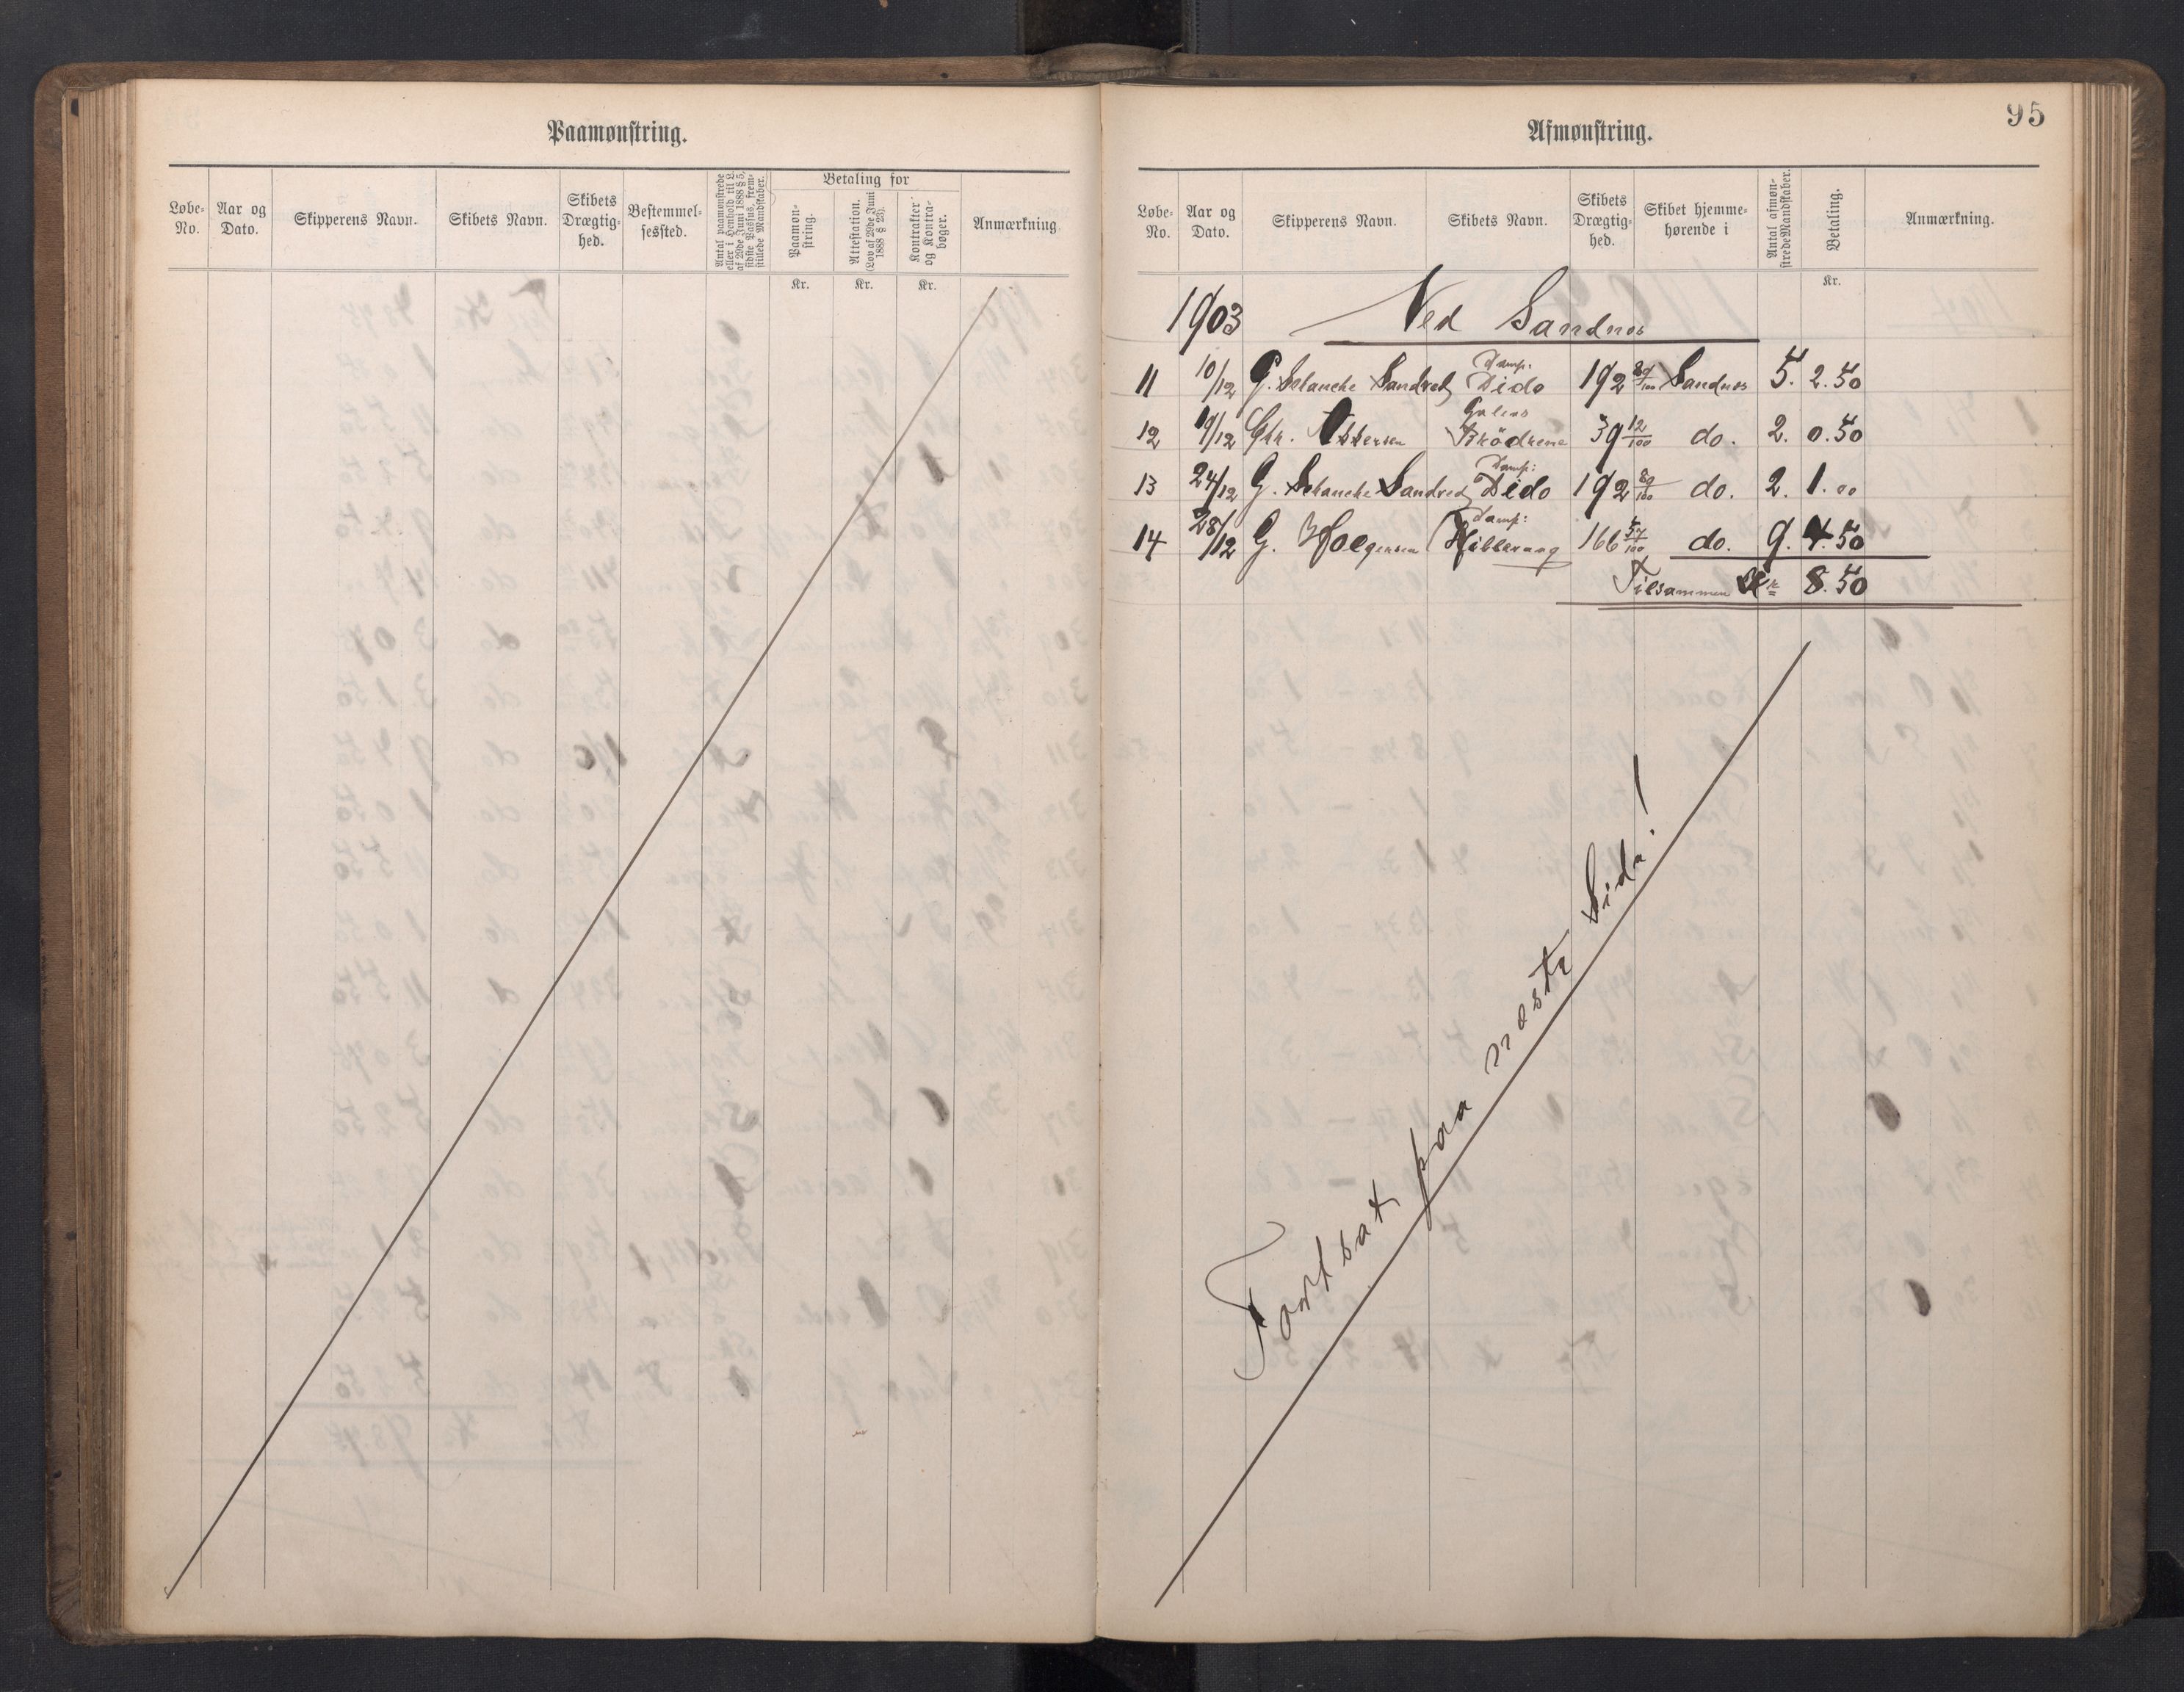 Paamønstring.
Løbe-No. Aar og Dato. Skipperens Navn. Skibets Navn. Skibets Drægtig-hed. Bestemmel-sessted. Antal paamønstrede eller i Henhold til L. af 29de Juni 1888 § 5, sidste Passus, frem-stillede Mandskaber. Betaling for Paamøn-string. Attestation. (Lov af 29de Juni 1888 § 23). Kontrakter og Kontra-bøger. Anmærkning.
Kr. Kr. Kr.
95
Afmønstring.
Løbe-No. Aar og Dato. Skipperens Navn. Skibets Navn. Skibets Drægtig-hed. Skibet hjemme-hørende i Antal afmøn-strede Mandskaber. Betaling. Anmærkning.
Kr.
1903 Ved Sandnes
11 10/12 G. Schanche Sandved Damp: Dido 192 80/100 Sandnes 5. 2.50
12 19/12 Chr. Galeas Brödrene 39 12/100 do. 2. 0.50
13 24/12 G. Schanche Sandved Damp: Dido 192 80/100 do. 2. 1.00
14 28/12 G. Damp: 166 57/100 do. 9. 4.50
Tilsammen Kr 8.50
Fortsat paa næste Side!